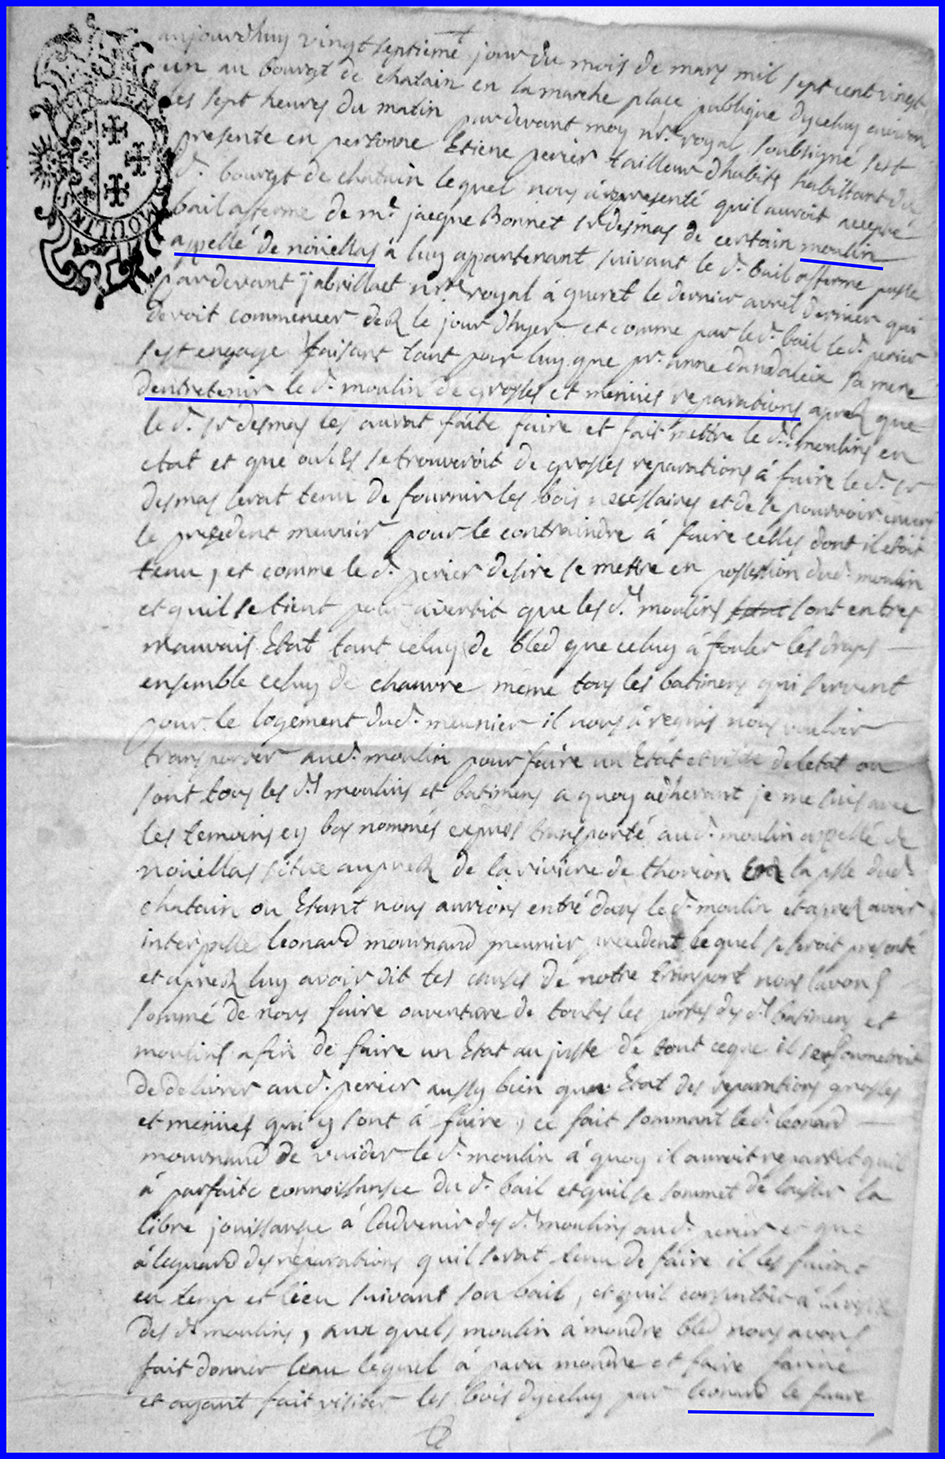 aujourdhuy vingt septieme jour du mois de mars mil sept cent vingt
un au bourgt de chatain en la marche place publique dyceluy environ
les sept heures du matin pardevant moy nre royal soubsigné sest
presente en personne Etiene perier tailleur dhabits habittant du
d. bourgt de chatain lequel nous á representé quil auroit accepté
bail afferme de mr. jacque Bonnet sr desmas de certain moulin
appellé de noüellas á luy appartenant suivant le d. bail afferme passé
pardevant jabrilliet nre royal á gueret le dernier avril dernier qui
devoit commencer de le jour dhyer et comme par le d. bail le d. perier
sest engage faisant tant pour luy que pr. anne dandaleix sa mere
dentretenir le d. moulin de grosses et menües reparations aprez que
le d. sr desmas les auroit faitte faire et fait mettre le d. moulins en
etat et que ou ils se trouveroit de grosses reparations á faire le d. sr
desmas serat tenu de fournir les bois necessaires et de se pourvoir envers
le precedent meunier pour le contraindre á faire celles dont il etoit
tenu, et comme le d. perier desire se mettre en possession dud. moulin
et quil se tient pour avertit que les d. moulins sont en tres
mauvais Etat tant celuy de bled que celuy á fouler les draps
ensemble celuy de chauvre même tous les batimens qui servent
pour le logement dud. meunier il nous á requis nous vouloir
transporter aud. moulin pour faire un Etat et de letat ou
sont tous les d. moulins et batimens a quoy adherant je me suis avec
les temoins cy bas nommés expres transporté aud. moulin appellé de
noüellas situe auprez de la riviere de thorion la psse dud.
chatain ou Etant nous aurions entré dans le d. moulin et aprez avoir
interpelle leonard mournaud meunier precedent lequel se seroit presenté
et aprez luy avoir dit les causes de notre transport nous lavons
sommé de nous faire ouverture de toutes les portes des d. batimens et
moulins afin de faire un Etat au juste de tout ceque il se soumetroit
de delivrer aud. perier aussy bien que Etat des reparations grosses
et menües qui y sont á faire, ce fait sommant le d. leonard
mournaud de vuider le d. moulin á quoy il auroit repartit quil
á parfaite connoissance du d. bail et quil se sommet de laisser la
libre jouissance á ladvenir des d. moulins aud. perier et que
á leguard des reparations quil serat tenu de faire il les faira
en temp et lieu suivant son bail, et quil consentoit á la
des d. moulins, aux quels moulin á moudre bled nous avons
fait donner leau lequel á paru moudre et faire farine
et ayant fait visiter les bois dyceluy par leonard le faure